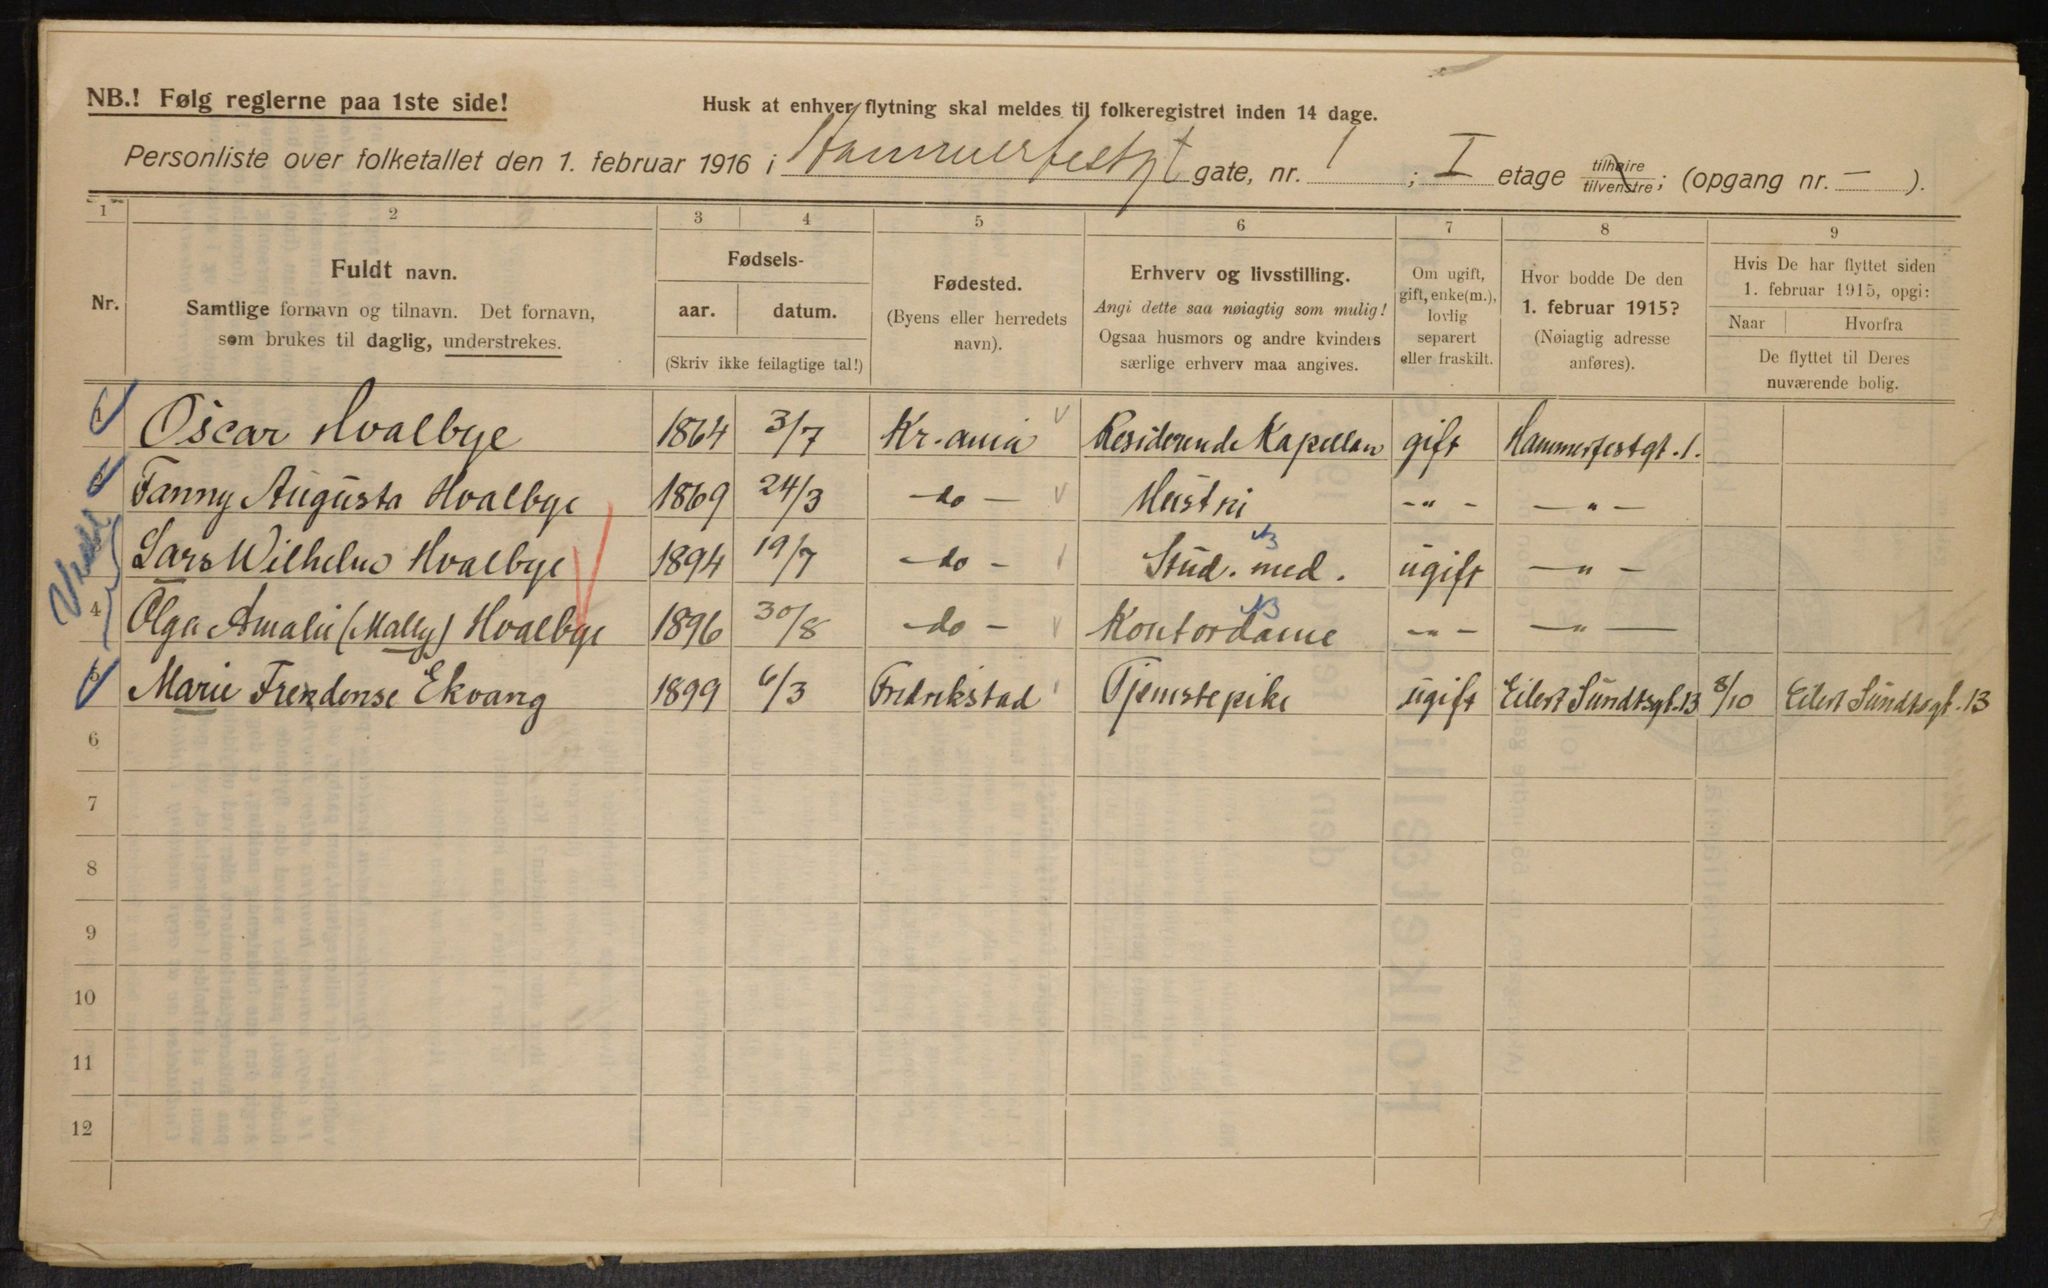 NB.! Følg reglerne paa 1ste side!
Husk at enhver flytning skal meldes til folkeregistret inden 14 dage.
Personliste over folketallet den 1. februar 1916 i Hammerfestgt gate, nr. 1 ; I etage tilhøire tilvenstre ; (opgang nr. — ).
1 2 3 4 5 6 7 8 9
Nr.
Fuldt navn.
Samtlige fornavn og tilnavn. Det fornavn,
som brukes til daglig, understrekes.
Fødsels-
aar. datum.
(Skriv ikke feilagtige tal!)
Fødested.
(Byens eller herredets
navn).
Erhverv og livsstilling.
Angi dette saa nøiagtig som mulig!
Ogsaa husmors og andre kvinders
særlige erhverv maa angives.
Om ugift,
gift, enke(m.),
lovlig
separert
eller fraskilt.
Hvor bodde De den
1. februar 1915?
(Nøiagtig adresse
anføres).
Hvis De har flyttet siden
1. februar 1915, opgi:
Naar Hvorfra
De flyttet til Deres
nuværende bolig.
1 Oscar Hvalbye 1864 3/7 Kr-ania Residerende Kapellan gift Hammerfestgt. 1.
Fanny Augusta Hvalbye 1869 24/3 —do— Hustru —„— —„—
Lars Wilhelm Hvalbye 1894 19/7 —do— Stud. med. ugift —„—
4 Olga Amalie (Mally) Hvalbye 1896 30/8 —do— Kontordame —„— —„—
5 Marie Fredense Ekvang 1899 6/3 Fredrikstad Tjenstepike ugift Eilert Sundtsgt. 13 8/10 Eilert Sundtsgt. 13
6
7
8
9
10
11
12